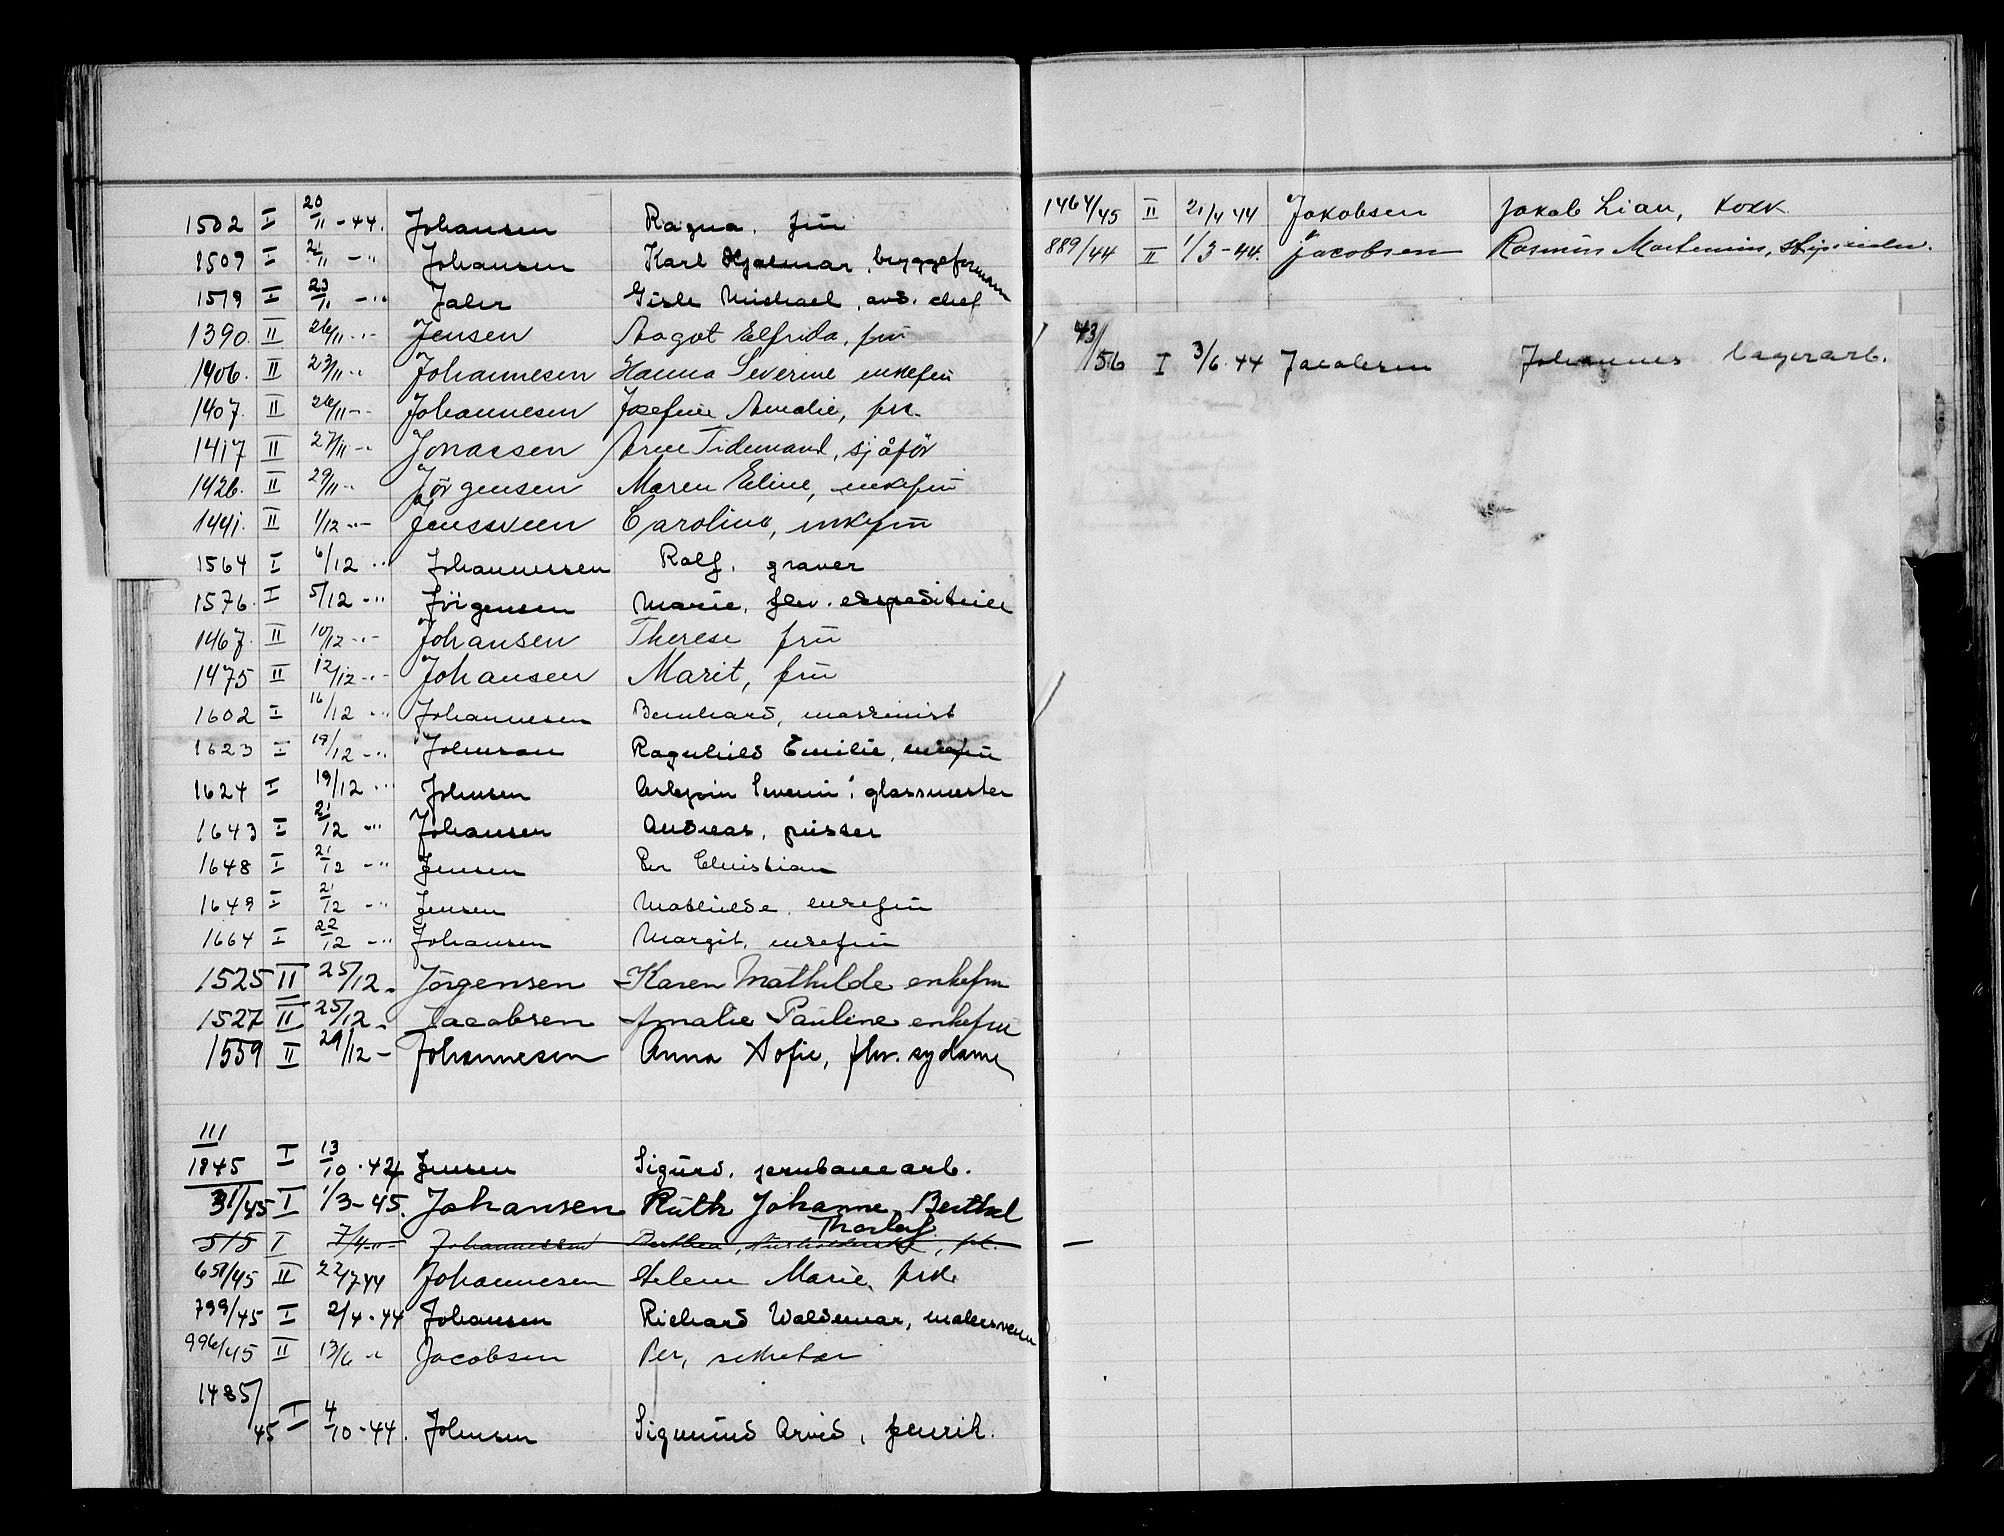 1502 I 20/11 - 44. Johansen Ragna, frü
1509 I 21/11 - " Johansen Karl Hjalmar, bryggeformann
1519 I 23/11 - " Jahr Gisle Michael, avd. chef
1390. II 26/11 - " Jensen Aagot Elfrida, frü
1406. II 23/11 - " Johannesen Hanna Severine enkefrü
1407. II 26/11 - " Johannesen Josefine Amalie, frk.
1417 II 27/11 - " Jonassen Arne Tidemand, sjåför
1426. II 29/11 - " Jörgensen Maren Eline, enkefrü
1441. II 1/12 - " Jenssveen Caroline, enkefrü
1564 I 6/12 - " Johannessen Rolf, graver
1576. I 5/12 - " Jörgensen Marie, fhv. expeditrice
1467. II 10/12 - " Johansen Therese frü
1475 II 12/12 - " Johansen Marit, frü
1602 I 16/12 - " Johannesen Bernhard, maskinist
1623 I 19/12 - " Johnson Ragnhild Emilie, enkefrü
1624 I 19/12 - " Johnsen Severin, glassmester
1643 I 21/12 - " Johansen Andreas, püsser
1648 I 21/12 - " Jensen Per Christian
1649 I 21/12 - " Jensen Mathilde, enkefrü
1664 I 22/12 - " Johansen Margit, enkefrü
1525 II 25/12 - Jörgensen Karen Mathilde enkefru
1527 II 25/12 - Jacobsen Amalie Pauline enkefru
1559 II 29/12 - Johannesen Anna Sofie, fhv. sydame
111
1945 I 13/10 . 44 Jensen Sigurd, jernbanearb.
31/45 I 1/3 - 45. Johansen Rüth Johanne Berthel
Thorleif
515 I 7/4 - " - Johannessen
651/45 II 22/7 44 Johannesen Helene Marie, frk.
799/45 I 2/4 . 44 Johansen Richard Waldemar, malersvenn
996/45 II 13/6 - " Jacobsen Per, sekretær
1485/
45 I 4/10 - 44. Johnsen Sigmund Arvid,
1464/45 II 21/4 44 Jakobsen Jakob Lian, kokk
889/44 II 1/3 - 44. Jacobsen Rasmus Martenius,
43/
56 I 3/6 . 44 Jacobsen Johannes lagerarb.